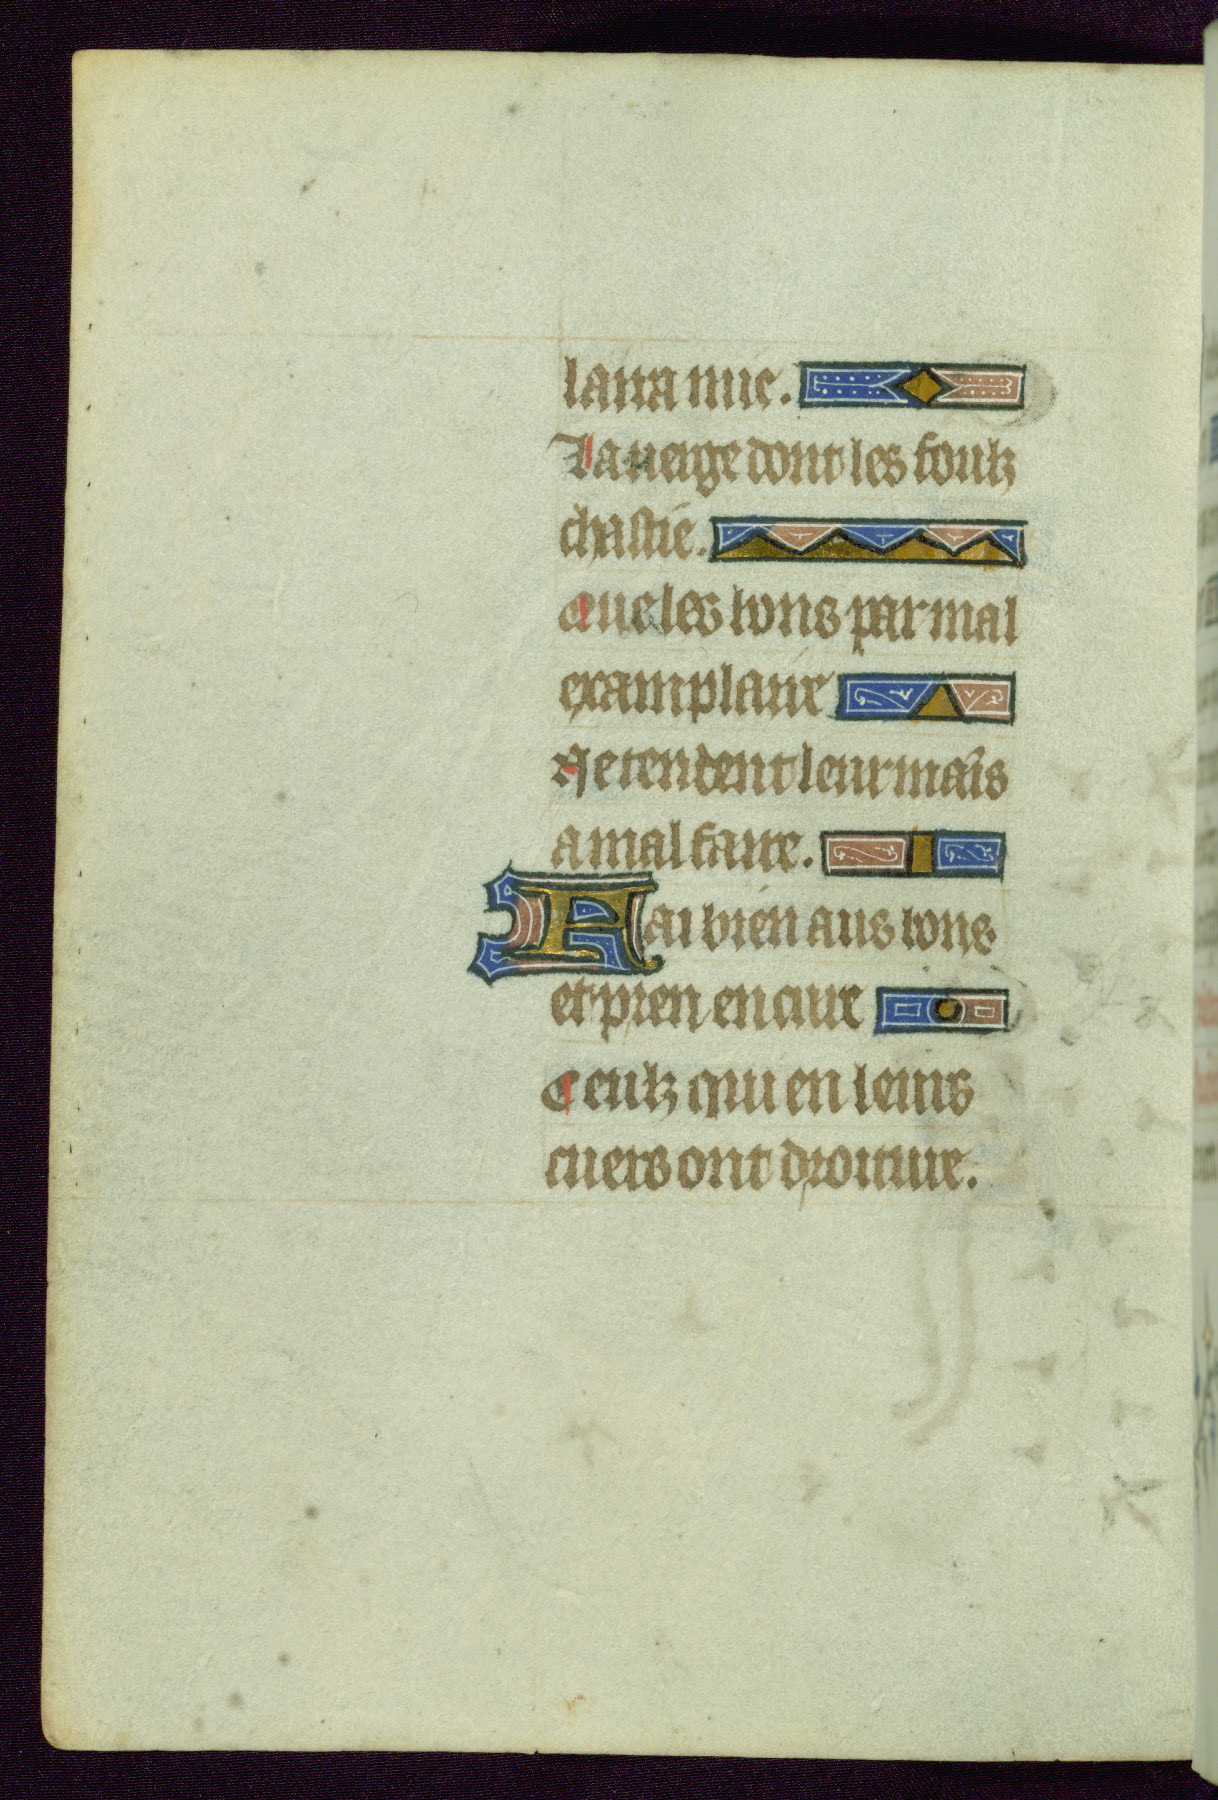 laira mie.
La uerge dont les foulz
chastie.
Que les bons par mal
examplaire
Ne tendent leur maīs
a mal faire.
Fai bien aus bons
et pren en cure
Ceulz qui en leurs
cuers ont droiture.